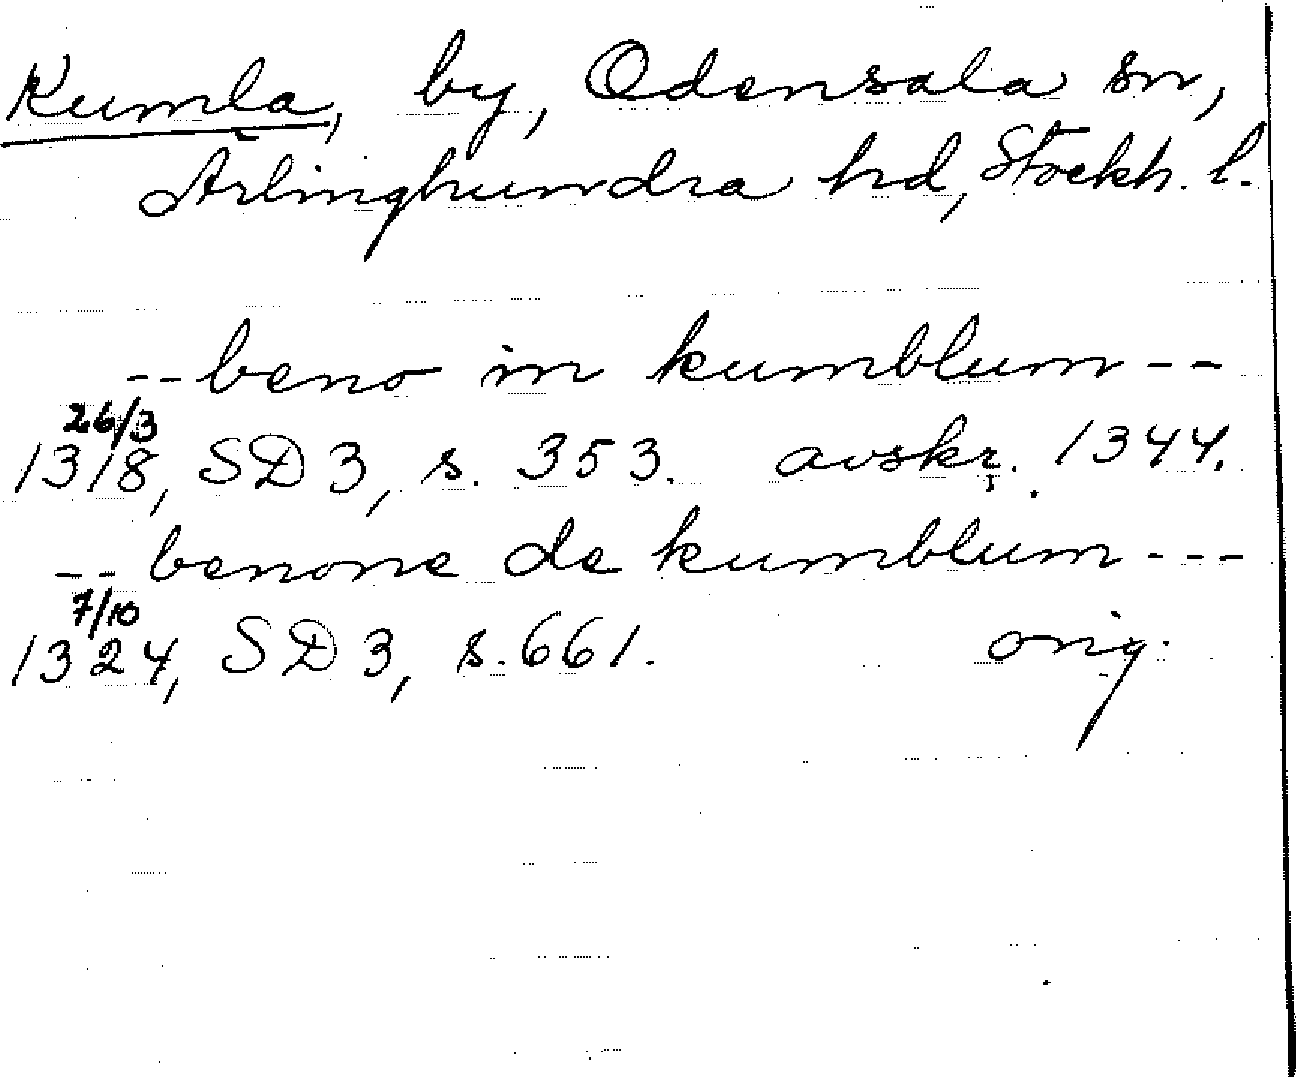 Kumla, by, Odensala sn,
Ärlinghundra hd, Stockh. l.
-- beno in kumblum --
26/3
1318, SD 3, s. 353. avskr. 1344.
-- benone de kumblum ---
7/10
1324, SD 3, s. 661. orig.